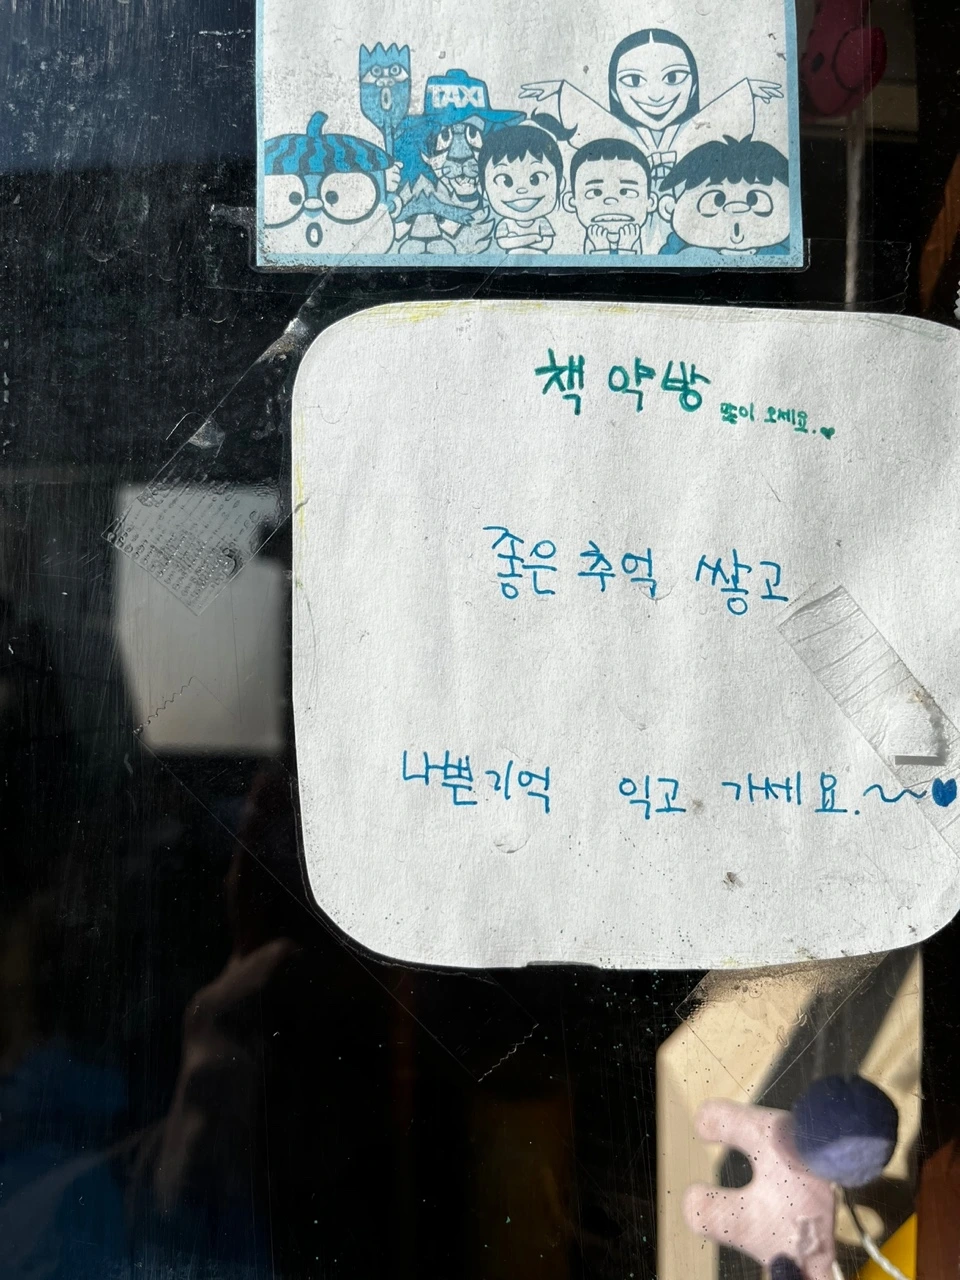 TAXI
책 약방 많이 오세요.♥
좋은 추억 쌓고
나쁜 기억 잊고 가세요.~♥